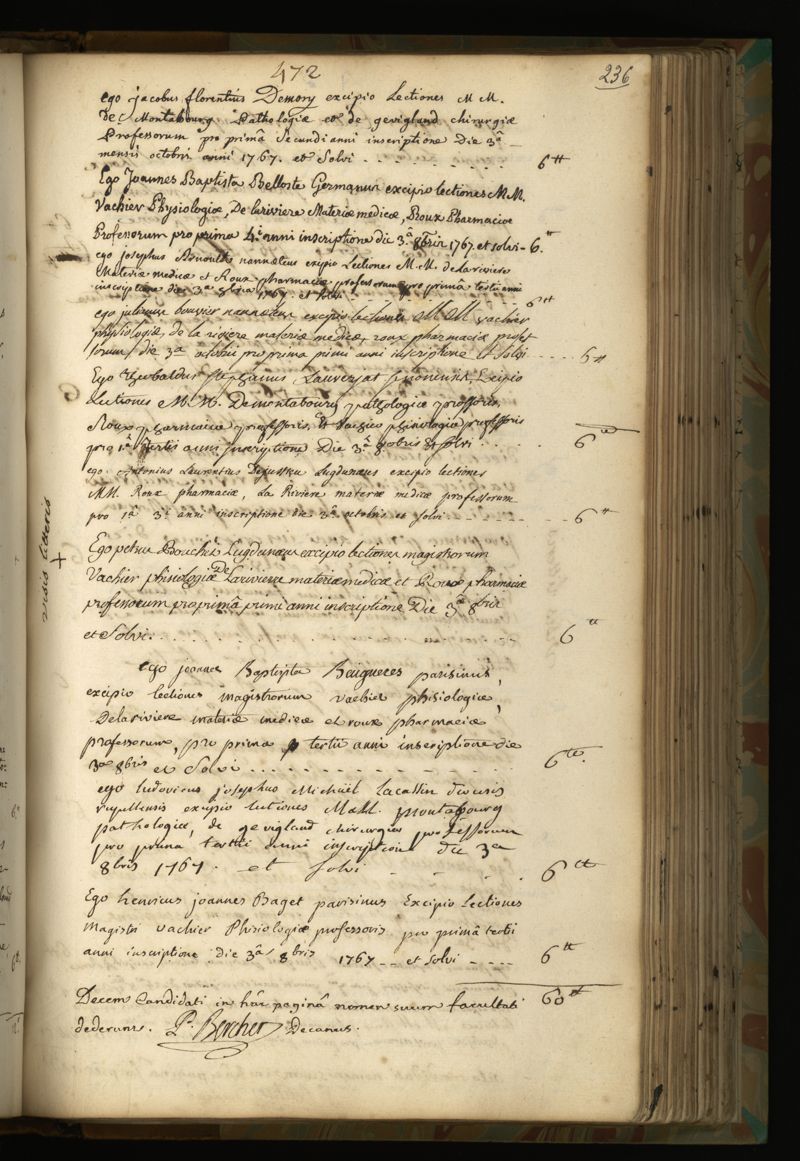 472
236
ego jacobus florentius Demory excipio Lectiones M M.
de Montabourg Pathologiæ et de gevigland chirurgiæ
Professorum pro primâ Secundi anni inscriptione Die 3ª
mensis octobris anni 1767. et Solvi 6 ₶
Ego Joannes Baptista Belloste Germanus excipio lectiones M.M.
Vachier Physiologiæ, De lariviere Materiæ medicæ, Roux Pharmaciæ
Professorum pro prima 4.i anni inscriptione die 3.ª 8bris 1767. et solvi - 6.₶
ego josephus nannæteus excipio Lectiones M.M. de Lariviere
Materiæ medicæ et Roux pharmaciæ professorum pro primâ tertii anni
inscriptione die 3ª 8bris 1767. et Solvi 6₶
ego julianus bouvier nannæteus excipio lectiones M M vachier
physiologiæ, de la riviere materiæ medicæ, roux pharmaciæ profes
sorum die 3ª octobris pro prima primi anni inscriptione et solvi 6₶
Ego Theobaldus Stephanus Lauverjat Excipio
Lectiones M.M. Demontabourg pathologiæ professoris,
Roux pharmaciæ professoris, et Vachier phisiologiæ professoris
pro 1ª tertii anni Inscriptione Die 3ª 8bris et solvi 6₶
ego Antonius Laurentius Dejussieu Lugdunæus excipio lectiones
MM. Roux pharmaciæ, La Riviere materiæ medicæ professorum
pro 1ª 3.i anni inscriptione die 3ª octobris et solvi 6₶
visis litteris
+
Ego petrus Bouchet Lugdunæus excipio lectiones magistrorum
Vachier phisiologiæ De Lariviere materiæ medicæ et Roux pharmaciæ
professorum pro primâ primi anni inscriptione Die 3ª 8bris
et Solvi. 6₶
ego joannes Baptista Baigneres parisinus,
excipio lectiones magistrorum vachier phisiologiæ,
Delariviere materiæ medicæ et roux pharmaciæ
professorum, pro prima tertii anni inscriptione die
3ª 8bris et Solvi 6₶
ego ludovicus josephus Michael Lacassin diœcesis
rupellensis excipio lectiones M M. montabourg
pathologiæ, de gevigland chirurgiæ professorum
pro prima tertii anni inscriptione die 3ª
8bris 1767. et solvi 6₶
Ego henricus joannes Baget parisinus Excipio Lectiones
Magistri vachier Phisiologiæ professoris pro primâ tertii
anni inscriptione die 3ª 8bris 1767 et Solvi 6₶
Decem Candidati in hâc paginâ nomen suum facultati 60₶
dederunt. P. Bercher Decanus.